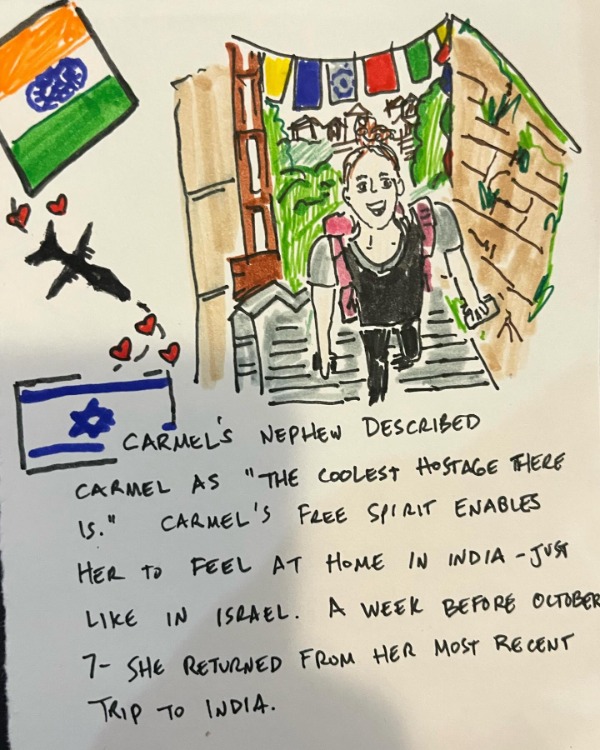 CARMEL'S NEPHEW DESCRIBED
CARMEL AS "THE COOLEST HOSTAGE THERE
IS." CARMEL'S FREE SPIRIT ENABLES
HER TO FEEL AT HOME IN INDIA - JUST
LIKE IN ISRAEL. A WEEK BEFORE OCTOBER
7- SHE RETURNED FROM HER MOST RECENT
TRIP TO INDIA.